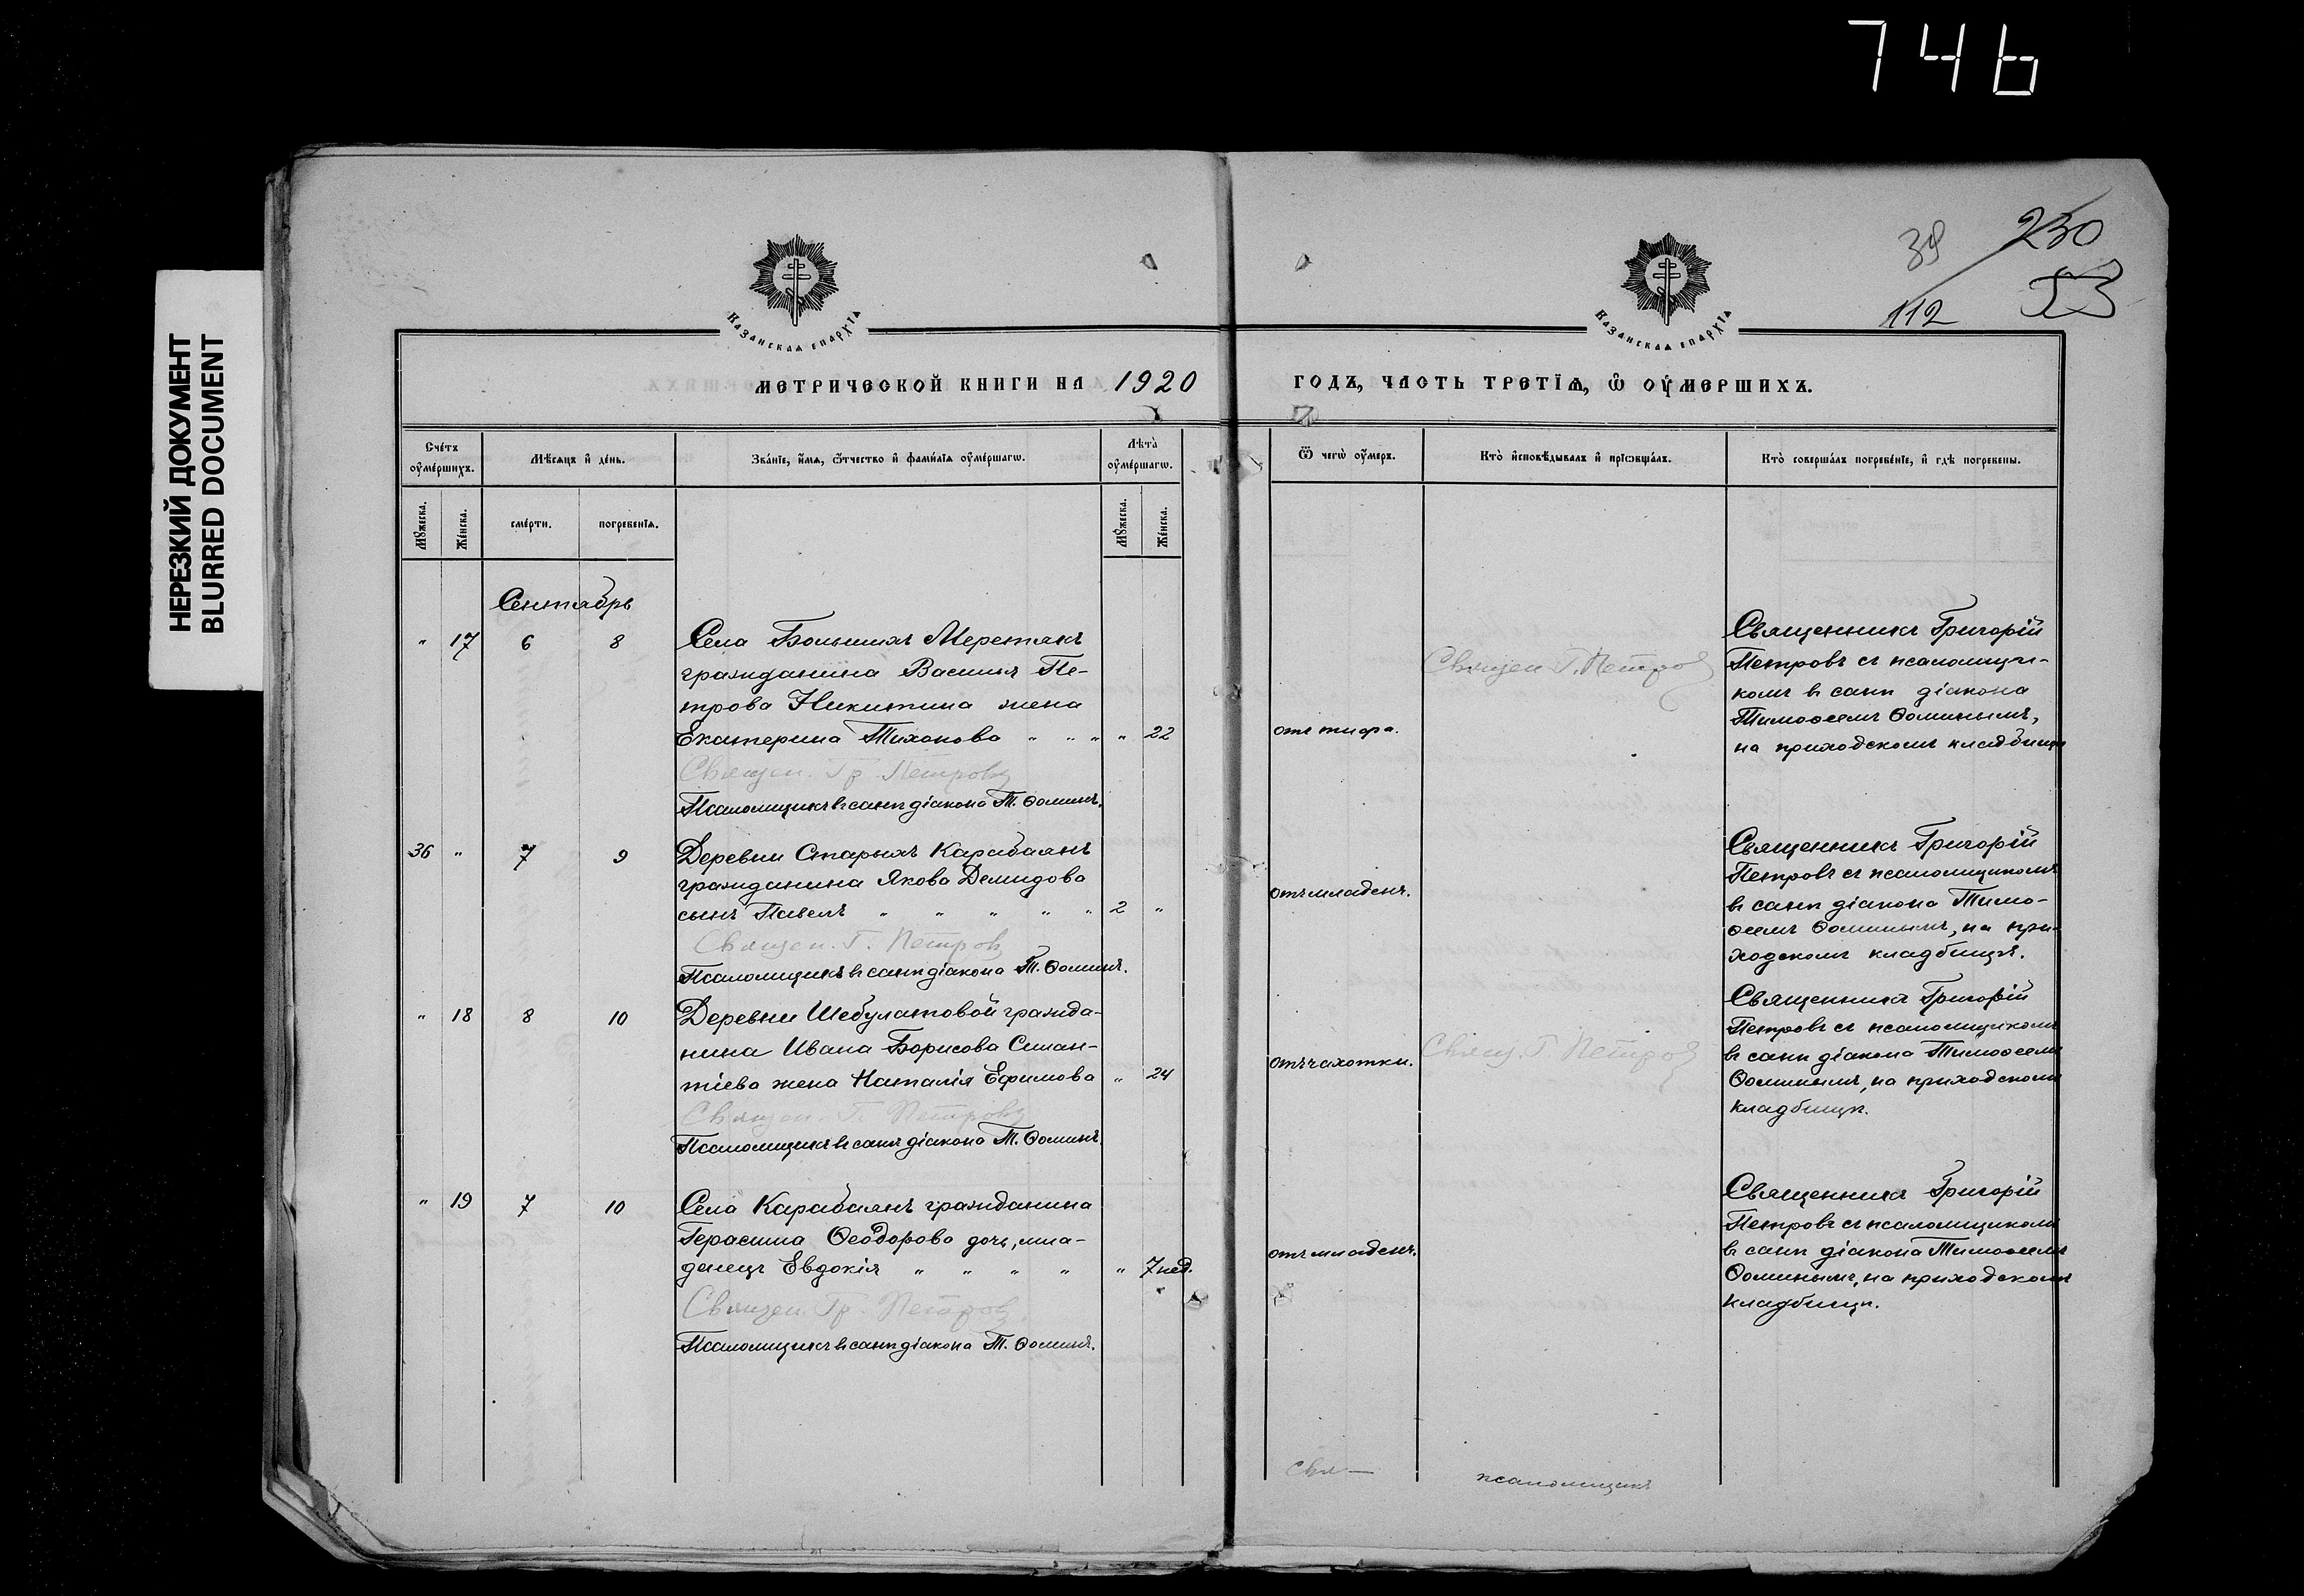 746
НЕРЕЗКИЙ ДОКУМЕНТ
BLURRED DOCUMENT
39
230
112
53
КАЗАНСКАѦ ЕПАРХІА
КАЗАНСКАѦ ЕПАРХІА
МЕТРИЧЕСКОЙ КНИГИ НА 1920
ГОДЪ, ЧАСТЬ ТРЕТІѦ, Ѡ ОУМЕРШИХЪ.
Сче́тъ оу҆ме́ршихъ.
Мѣ́сѧцъ и҆ де́нь.
Зва́нїе, и҆́мѧ, ѻ҆́тчество и҆ фами́лїѧ оу҆ме́ршагѡ.
Лѣта̀ оу҆ме́ршагѡ.
Ѿ чегѡ̀ оу҆́меръ.
Кто̀ и҆сповѣ́дывалъ и҆ прїѡбща́лъ.
Кто̀ соверша́лъ погребе́нїе, и҆ гдѣ̀ погребены.
Мꙋ́жеска.
Же́нска.
сме́рти.
погребе́нїѧ.
Мꙋ́жеска.
Же́нска.
Сентябрь
" 17 6 8
Села Большихъ Меретякъ
гражданина Василія Пе-
трова Никитина жена
Екатерина Тихонова " " " " 22
Священ. Гр. Петровъ
Псаломщикъ въ санѣ діакона Т. Ѳоминъ.
отъ тифа.
Священ. Г. Петров
Священникъ Григорій
Петровъ съ псаломщи-
комъ въ санѣ діакона
Тимоѳеемъ Ѳоминымъ,
на приходскомъ кладбищѣ
36 " 7 9
Деревни Старыхъ Карабаянъ
гражданина Якова Демидова
сынъ Павелъ " " " " " 2 "
Священ. Г. Петровъ
Псаломщикъ въ санѣ діакона Т. Ѳоминъ.
отъ младенч.
Священникъ Григорій
Петровъ съ псаломщикомъ
въ санѣ діакона Тимо-
ѳеемъ Ѳоминымъ, на при-
ходскомъ кладбищѣ.
" 18 8 10
Деревни Шебулатовой гражда-
нина Ивана Борисова
жена Наталія Ефимова " 24
Священ. Г. Петровъ
Псаломщикъ въ санѣ діакона Т. Ѳоминъ.
отъ чахотки.
Свящ. Г Петров
Священникъ Григорій
Петровъ съ псаломщикомъ
въ санѣ діакона Тимоѳеемъ
Ѳоминымъ, на приходскомъ
кладбищѣ.
" 19 7 10
Села Карабаянъ гражданина
Герасима Ѳеодорова дочь, мла-
денецъ Евдокія " " " " " 7 нед.
Священ. Гр. Петровъ
Псаломщикъ въ санѣ діакона Т. Ѳоминъ.
отъ младенч.
Священникъ Григорій
Петровъ съ псаломщикомъ
въ санѣ діакона Тимоѳеемъ
Ѳоминымъ, на приходскомъ
кладбищѣ.
Свя—
псаломщикъ